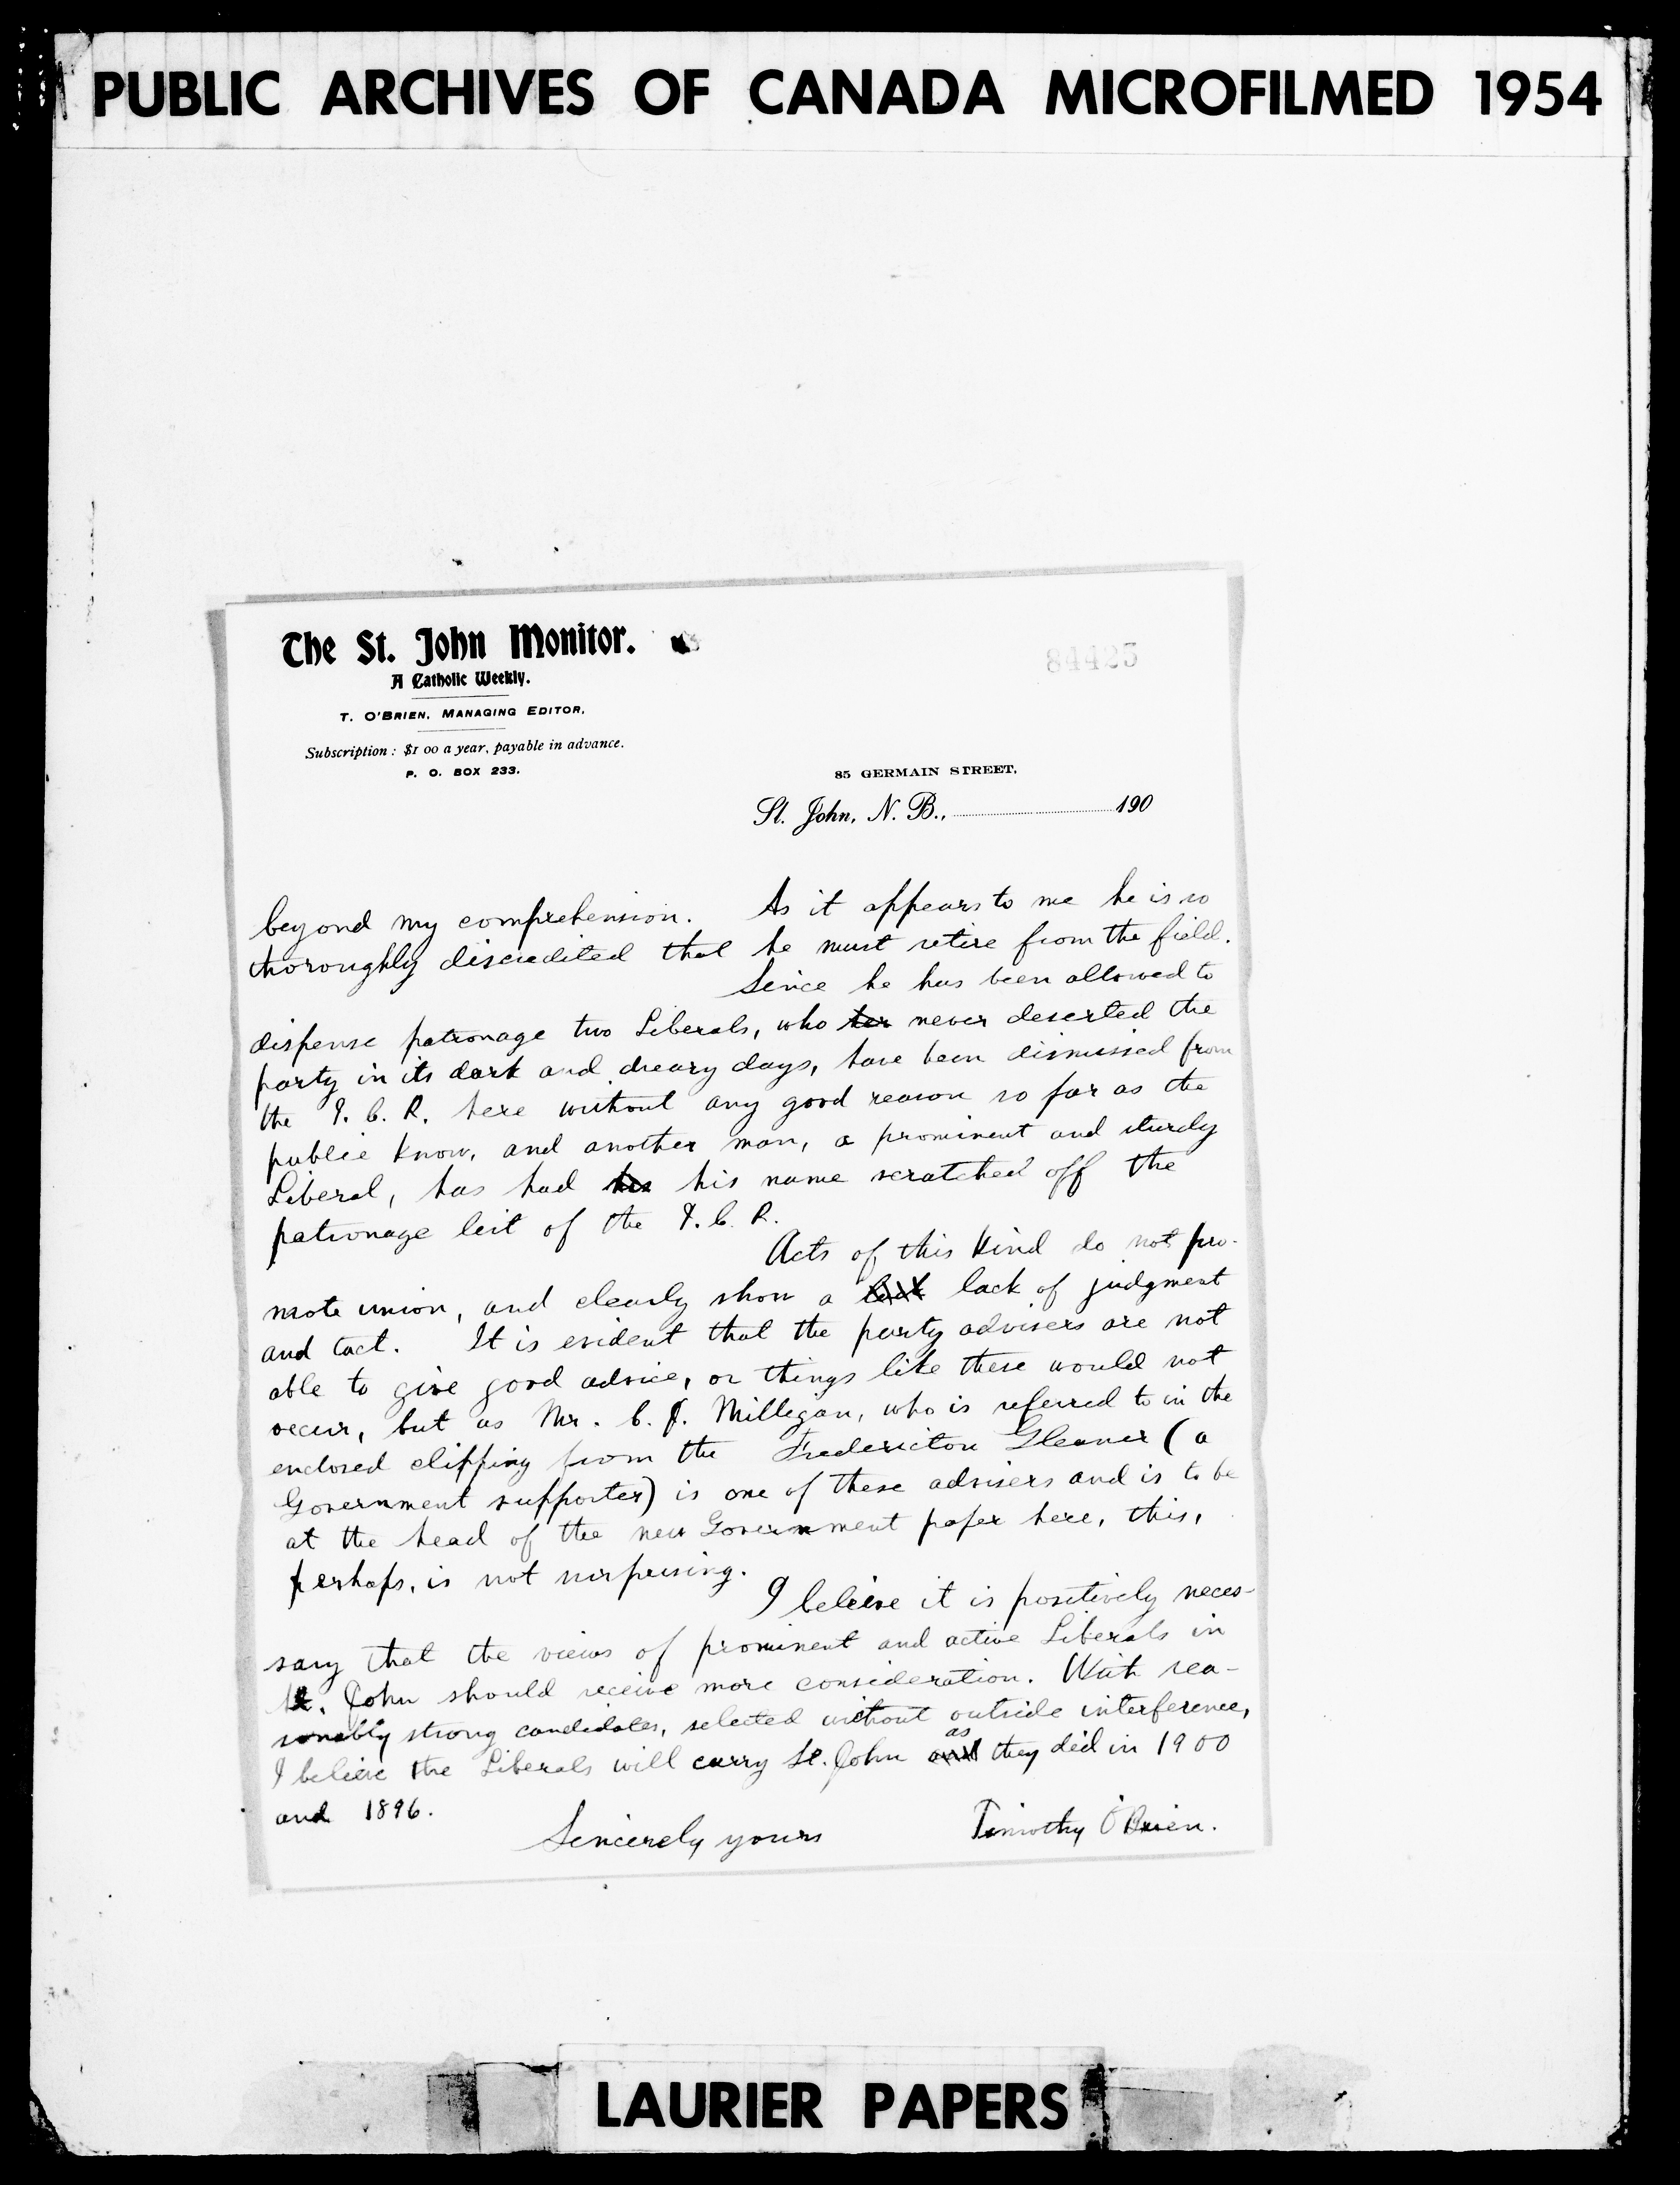 PUBLIC ARCHIVES OF CANADA MICROFILMED 1954
The St. John Monitor.
A Catholic Weekly.
T. O'BRIEN, MANAGING EDITOR.
Subscription: $1 00 a year, payable in advance.
P. O. BOX 233.
84425
85 GERMAIN STREET,
St. John, N. B., 190
beyond my comprehension. As it appears to me he is so
thoroughly discredited that he must retire from the field.
Since he has been allowed to
dispense patronage two Liberals, who never deserted the
party in its dark and dreary days, have been dismissed from
the I. C. R. here without any good reason so far as the
public know, and another man, a prominent and sturdy
Liberal, has had his his name scratched off the
patronage list of the I. C. R.
Acts of this kind do not pro-
mote union, and clearly show a lack of judgment
and tact. It is evident that the party advisers are not
able to give good advice, or things like these would not
occur, but as Mr. C. J. Milligan, who is referred to in the
enclosed clipping from the Fredericton Gleaner (a
Government supporter) is one of these advisers and is to be
at the head of the new Government paper here, this,
perhaps, is not surprising.
I believe it is positively neces-
sary that the views of prominent and active Liberals in
St. John should receive more consideration. With rea-
sonably strong candidates, selected without outside interference,
I believe the Liberals will carry St. John and as they did in 1900
and 1896.
Sincerely yours
Timothy O'Brien.
LAURIER PAPERS